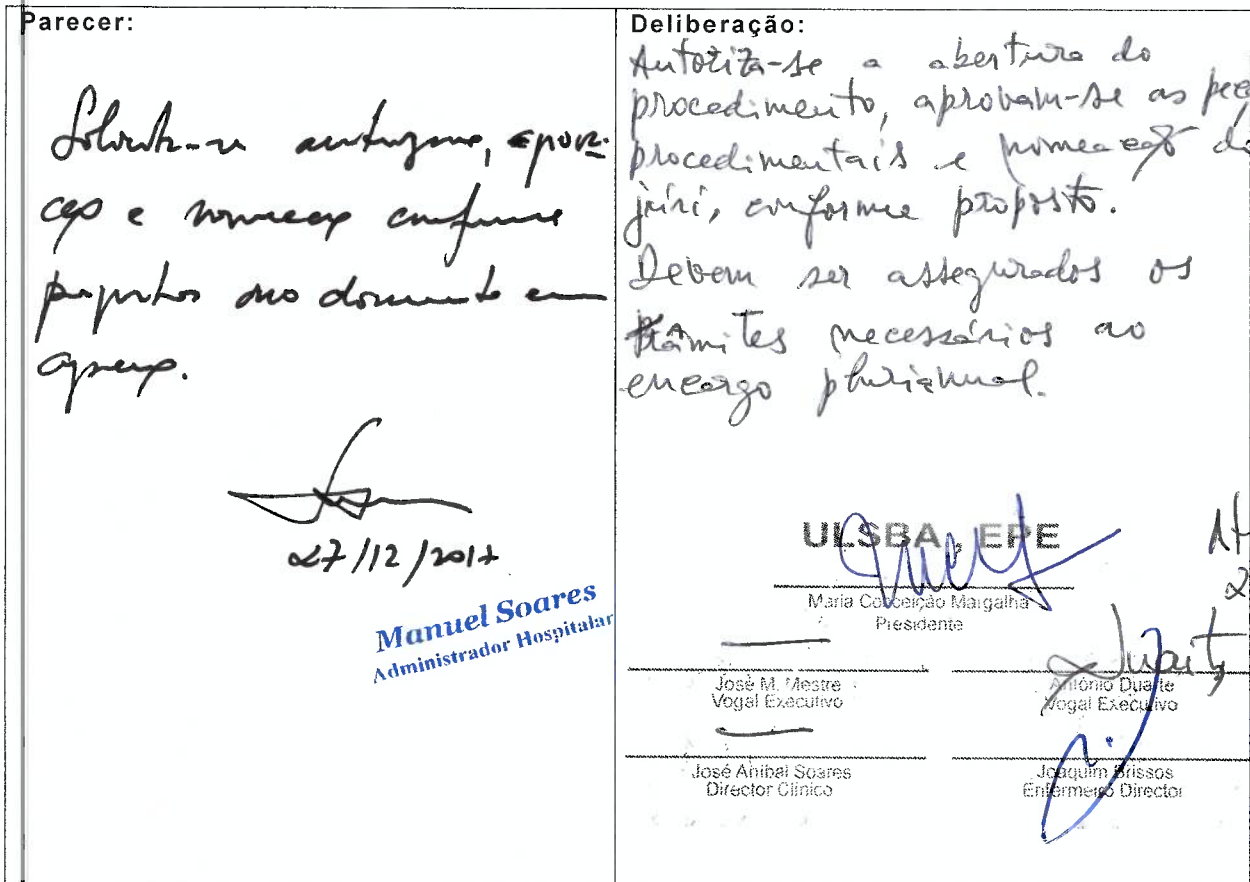 Parecer:
Solicita-se autorização, aprova-
ção e nomeação conforme
propostos no documento em
apreço.
27/12/2017
Manuel Soares
Administrador Hospitalar
Deliberação:
Autoriza-se a abertura do
procedimento, aprovam-se as peç
procedimentais e nomeação do
júri, conforme proposto.
Devem ser assegurados os
trâmites necessários ao
encargo plurianual.
ULSBA, EPE
Maria Conceição Margalha
Presidente
José M. Mestre
Vogal Executivo
António Duarte
Vogal Executivo
José Aníbal Soares
Director Clínico
Joaquim Brissos
Enfermeiro Director